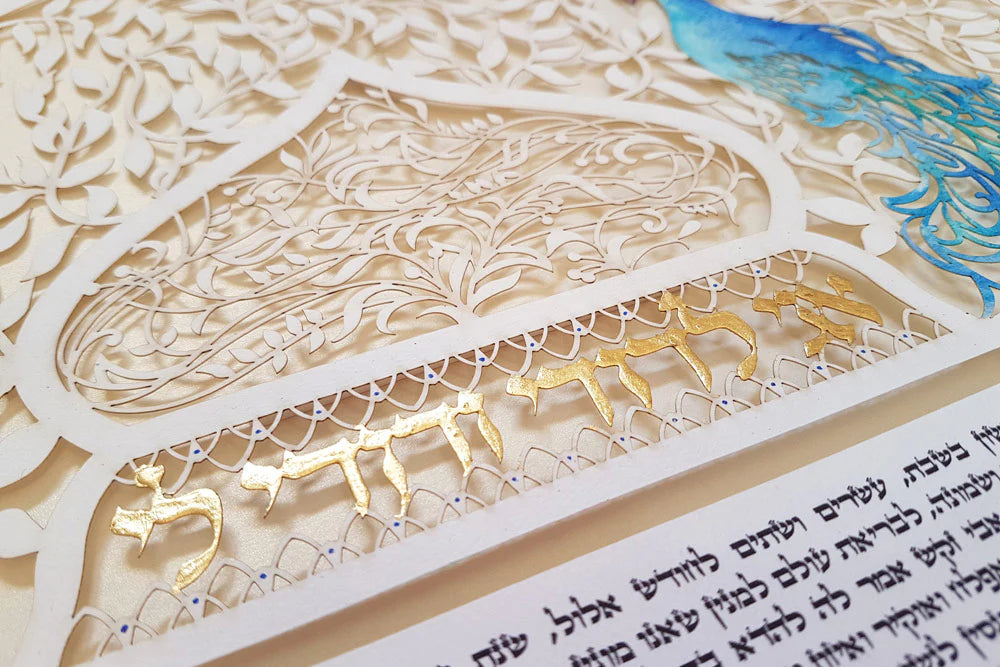 אני לדודי ודודי לי
בשבת, עשרים ושתים לחודש אלול, שנת
ושמונה, לבריאת עולם למנין שאנו
אבי וקש אמר לה להדא
ואוקיר